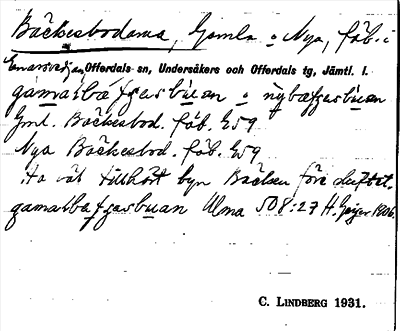 Bäckesbodarna, Gamla o Nya, fäb. i
Offerdals sn, Undersåkers och Offerdals tg, Jämtl. l.
gamalbä fjæsbuan o nybæfjæsbuan
Gml. Bäckesbod. fäb. G59
Nya Bäckesbod. fäb. G59
Ha väl tillhört byn Bäcken före
Ulma 508:27 H. Geijer 1906.
C. LINDBERG 1931.